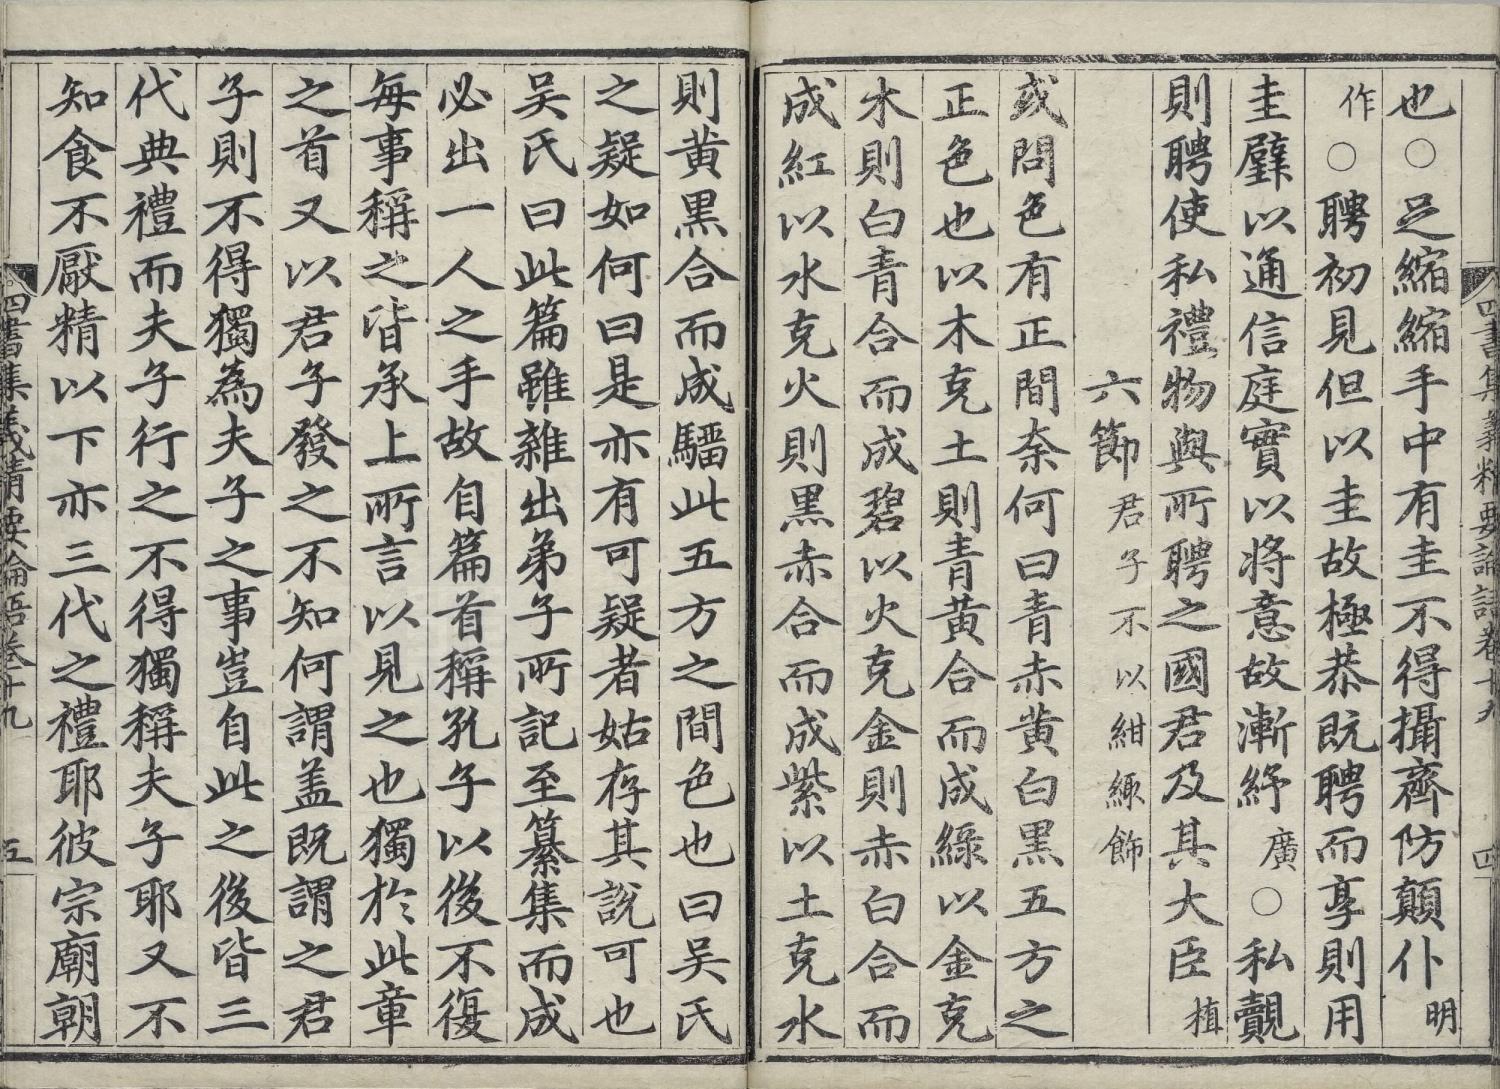 也○足縮縮手中有圭不得攝齊防顛仆明
作○聘初見但以圭故極恭既聘而享則用
圭璧以通信庭實以將意故漸紓廣○私覿
則聘使私禮物與所聘之國君及其大臣植
六節君子不以紺緅飾
或問色有正間奈何曰青赤黄白黑五方之
正色也以木克土則青黄合而成綠以金克
木則白青合而成碧以火克金則赤白合而
成紅以水克火則黑赤合而成紫以土克水
四書集義精要論語卷十九
四
則黄黑合而成騮此五方之間色也曰吴氏
之疑如何曰是亦有可疑者姑存其說可也
吴氏曰此篇雖雜出弟子所記至纂集而成
必出一人之手故自篇首稱孔子以後不復
每事稱之皆承上所言以見之也獨於此章
之首又以君子發之不知何謂盖既謂之君
子則不得獨為夫子之事豈自此之後皆三
代典禮而夫子行之不得獨稱夫子耶又不
知食不厭精以下亦三代之禮耶彼宗廟朝
四書集義精要論語卷十九
五